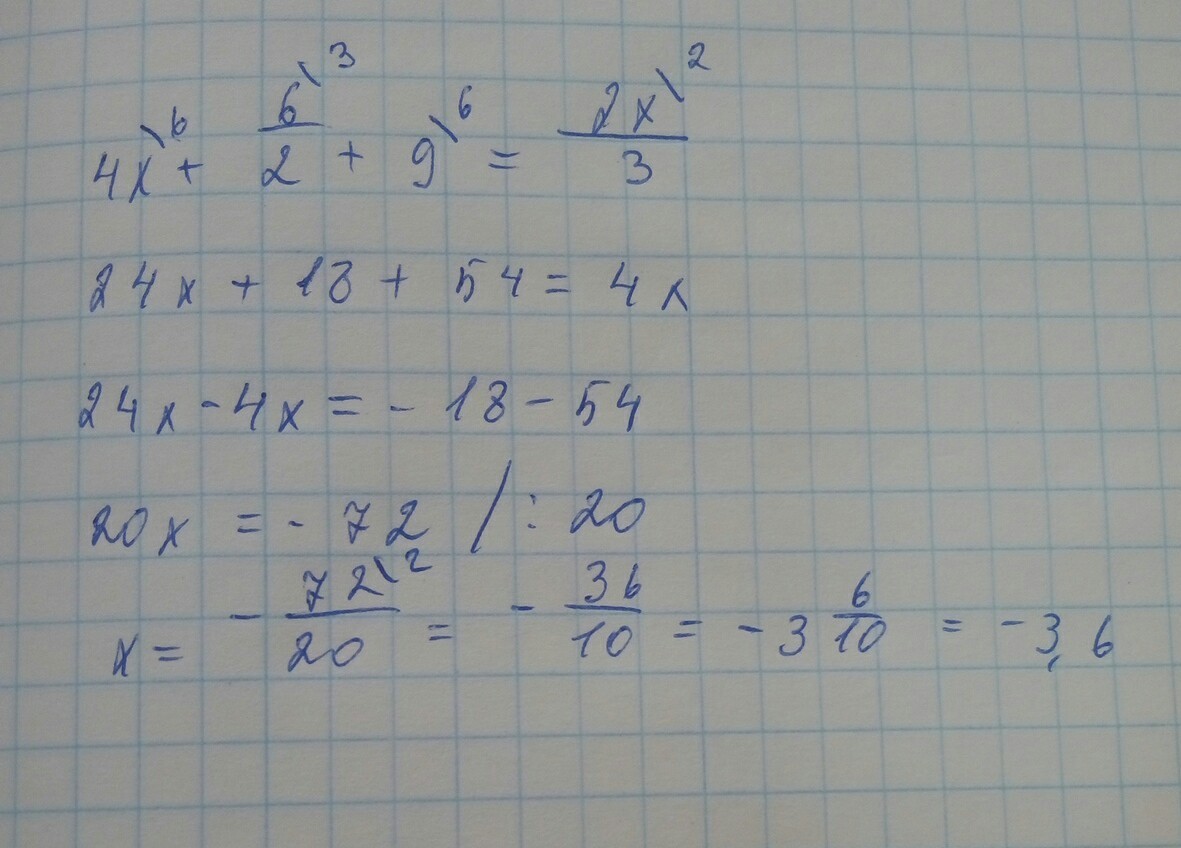 4x\6 + 6\3/2 + 9\6 = 2x\2/3
24x + 18 + 54 = 4x
24x - 4x = - 18 - 54
20x = - 72 / : 20
x = - 72\2/20 = - 36/10 = - 3 6/10 = - 3,6